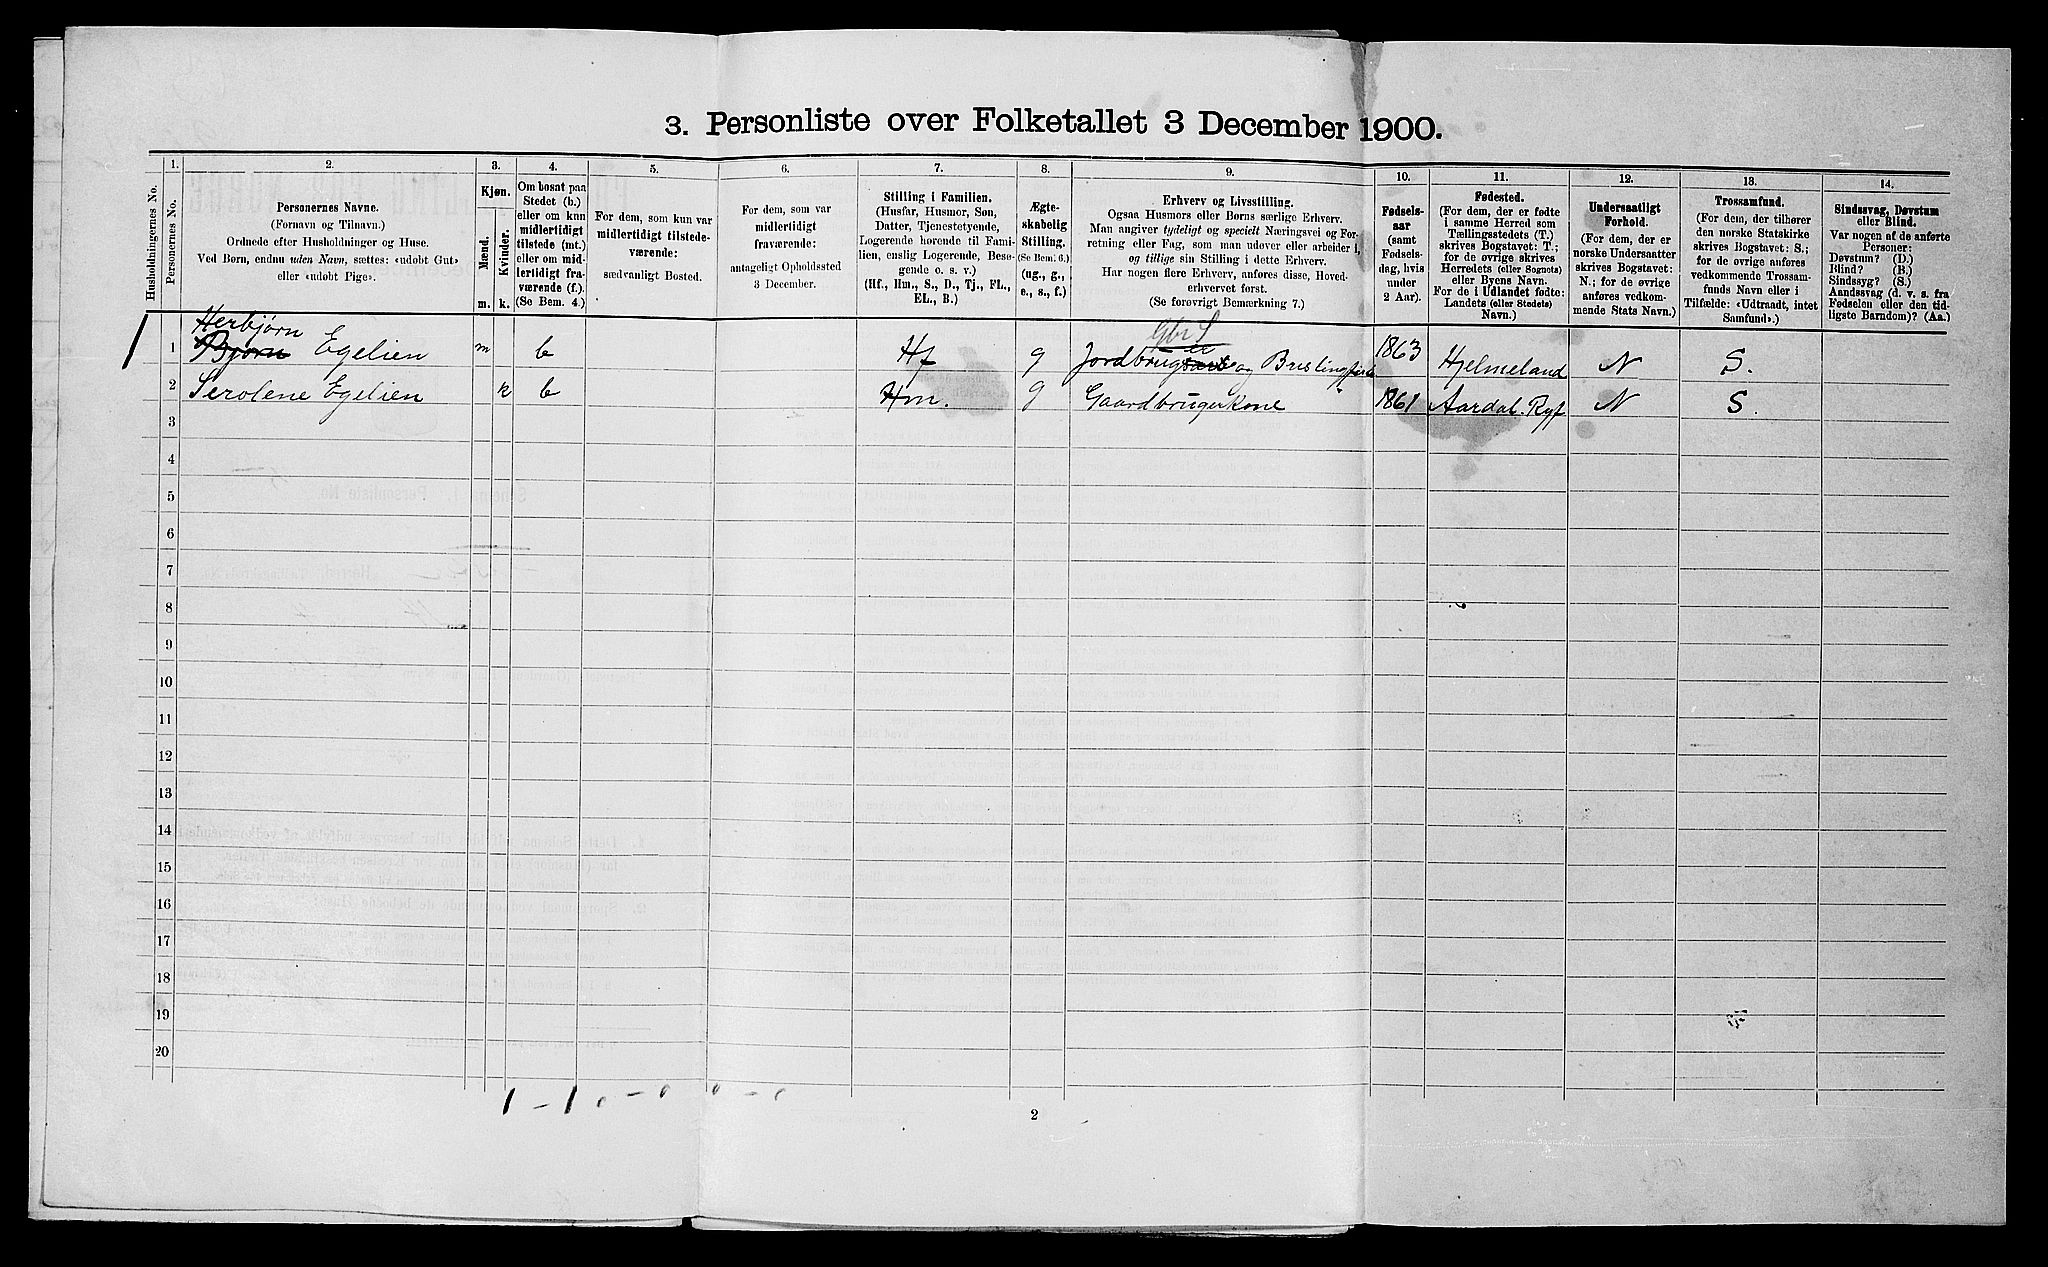 3. Personliste over Folketallet 3 December 1900.
Husholdningernes No.
1.
Personernes No.
2.
Personernes Navne.
(Fornavn og Tilnavn.)
Ordnede efter Husholdninger og Huse.
Ved Børn, endnu uden Navn, sættes: «udøbt Gut»
eller «udøbt Pige».
3.
Kjøn.
Mænd.
Kvinder.
m.
k.
4.
Om bosat paa
Stedet (b.)
eller om kun
midlertidigt
tilstede (mt.)
eller om mid-
lertidigt fra-
værende (f.).
(Se Bem. 4.)
5.
For dem, som kun var
midlertidigt tilstede-
værende:
sædvanligt Bosted.
6.
For dem, som var
midlertidigt
fraværende:
antageligt Opholdssted
3 December.
7.
Stilling i Familien.
(Husfar, Husmor, Søn,
Datter, Tjenestetyende,
Logerende hørende til Fami-
lien, enslig Logerende, Besø-
gende o. s. v.)
(Hf., Hm., S., D., Tj., FL.,
EL., B.)
8.
Ægte-
skabelig
Stilling.
(Se Bem. 6.)
(ug., g.,
e., s., f.)
9.
Erhverv og Livsstilling.
Ogsaa Husmors eller Børns særlige Erhverv.
Man angiver tydeligt og specielt Næringsvei og For-
retning eller Fag, som man udøver eller arbeider i,
og tillige sin Stilling i dette Erhverv.
Har nogen flere Erhverv, anføres disse, Hoved-
erhvervet først.
(Se forøvrigt Bemærkning 7.)
10.
Fødsels-
aar
(samt
Fødsels-
dag, hvis
under
2 Aar).
11.
Fødested.
(For dem, der er fødte
i samme Herred som
Tællingsstedets (T.)
skrives Bogstavet: T.;
for de øvrige skrives
Herredets (eller Sognets)
eller Byens Navn.
For de i Udlandet fødte:
Landets (eller Stedets)
Navn.)
12.
Undersaatligt
Forhold.
(For dem, der er
norske Undersaatter
skrives Bogstavet:
N.; for de øvrige
anføres vedkom-
mende Stats Navn.)
13.
Trossamfund.
(For dem, der tilhører
den norske Statskirke
skrives Bogstavet: S.;
for de øvrige anføres
vedkommende Trossam-
funds Navn eller i
Tilfælde: «Udtraadt, intet
Samfund».)
14.
Sindssvag, Døvstum
eller Blind.
Var nogen af de anførte
Personer:
Døvstum? (D.)
Blind? (B.)
Sindssyg? (S.)
Aandssvag (d. v. s. fra
Fødselen eller den tid-
ligste Barndom)? (Aa.)
Herbjørn
Gbr S
1 1 Bjørn Egelien m b Hf g Jordbruger og Brislingfisk 1863 Hjelmeland N S.
2 Serolene Egelien k b Hm. g Gaardbrugerkone 1861 Aardal. Ryf N S.
3
4
5
6
7
8
9
10
11
12
13
14
15
16
17
18
19
20
1 - 1 0 - 0 0 - 0
2